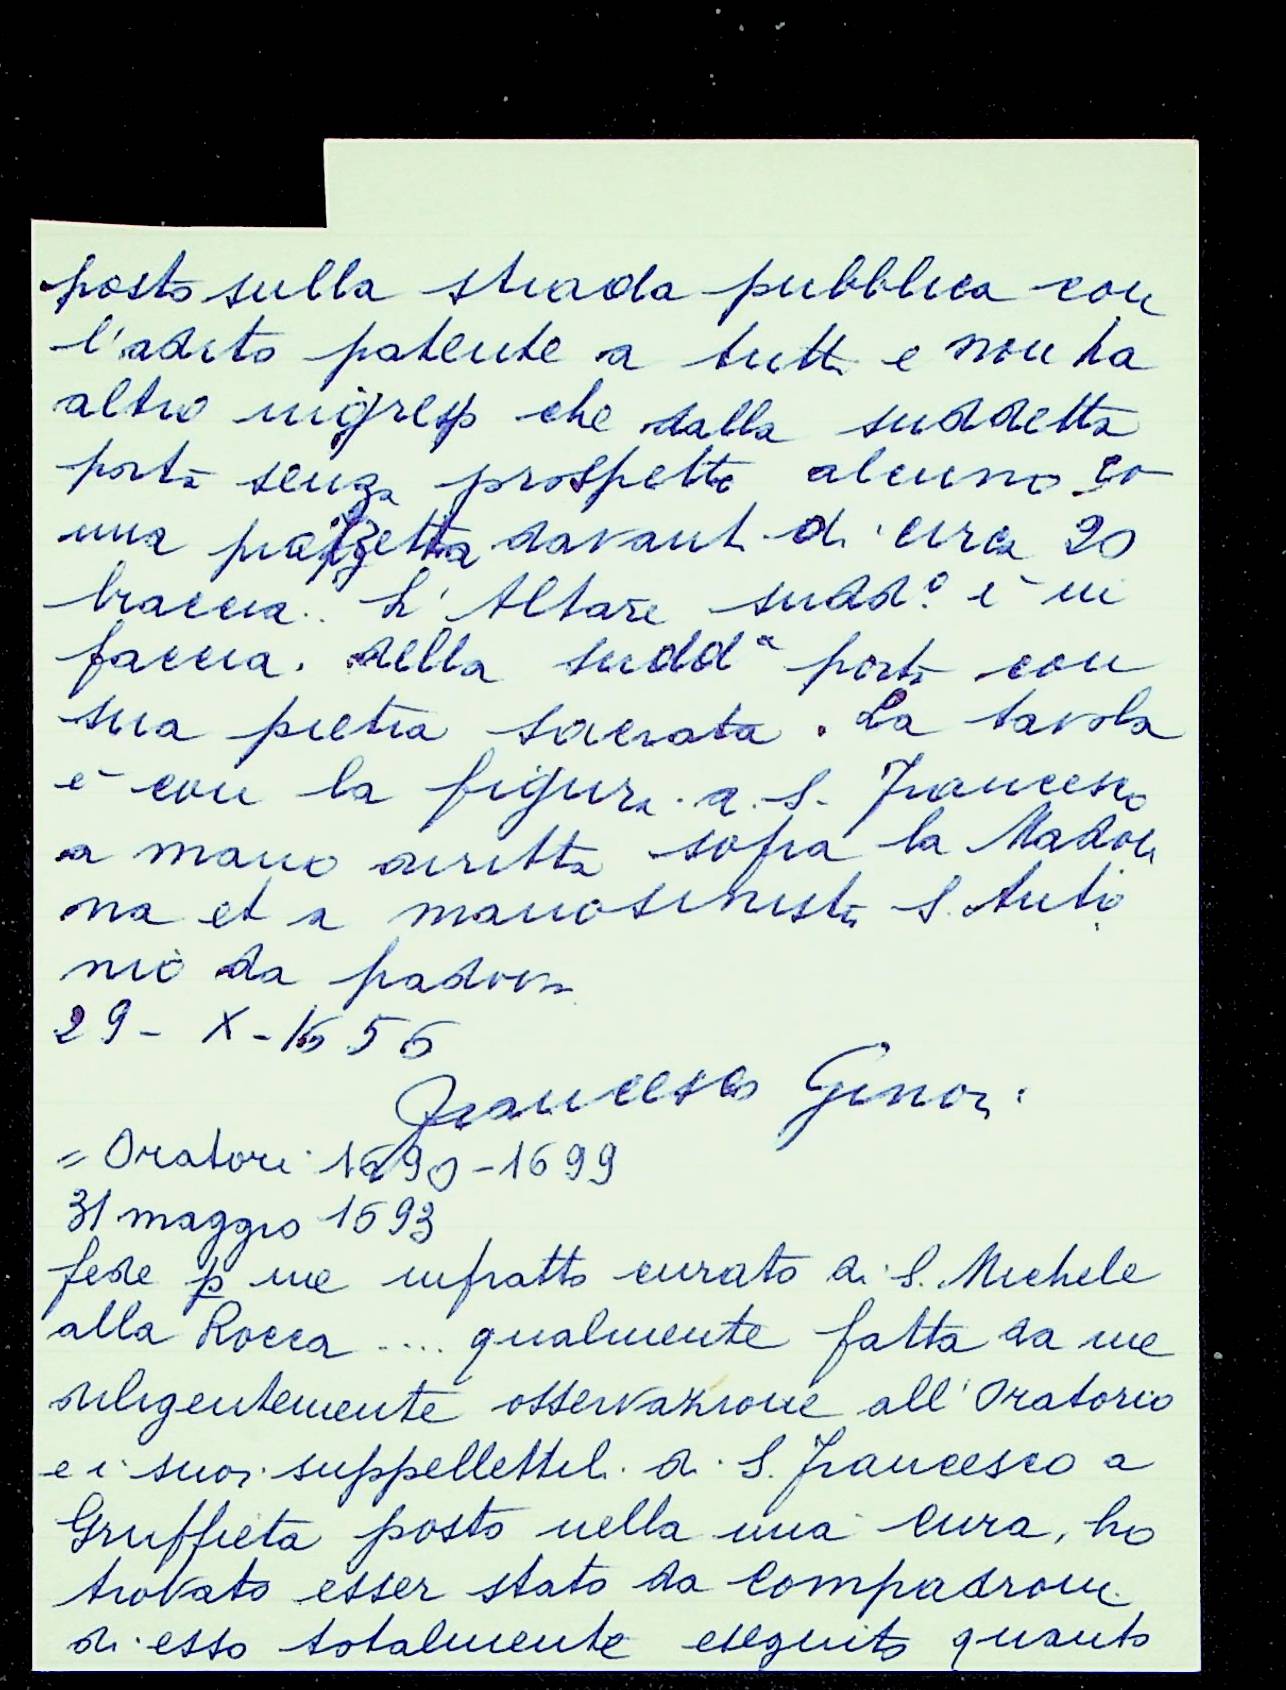 posto sulla strada pubblica con
l'adito patente a tutti e non ha
altro ingresso che dalla suddetta
porta senza prospetto alcuno co
una piazzetta davanti di circa 20
braccia. L'Altare sudd.º è in
faccia. della suddª porta con
sua pietra sacrata. La tavola
è con la figura a S. Francesco
a mano diritta sopra la Madon
na et a mano sinistra S. Anto
nio da padova
29 - X - 1656
Francesco Ginori
= Oratori 1690-1699
31 maggio 1693
fede p me infratto curato di S. Michele
alla Rocca .... qualmente fatta da me
diligentemente osservazione all'Oratorio
e i suoi suppellettili di S. Francesco a
Gruffieta posto nella mia cura, ho
trovato esser stato da Compadroni
di esso totalmente eseguito quanto